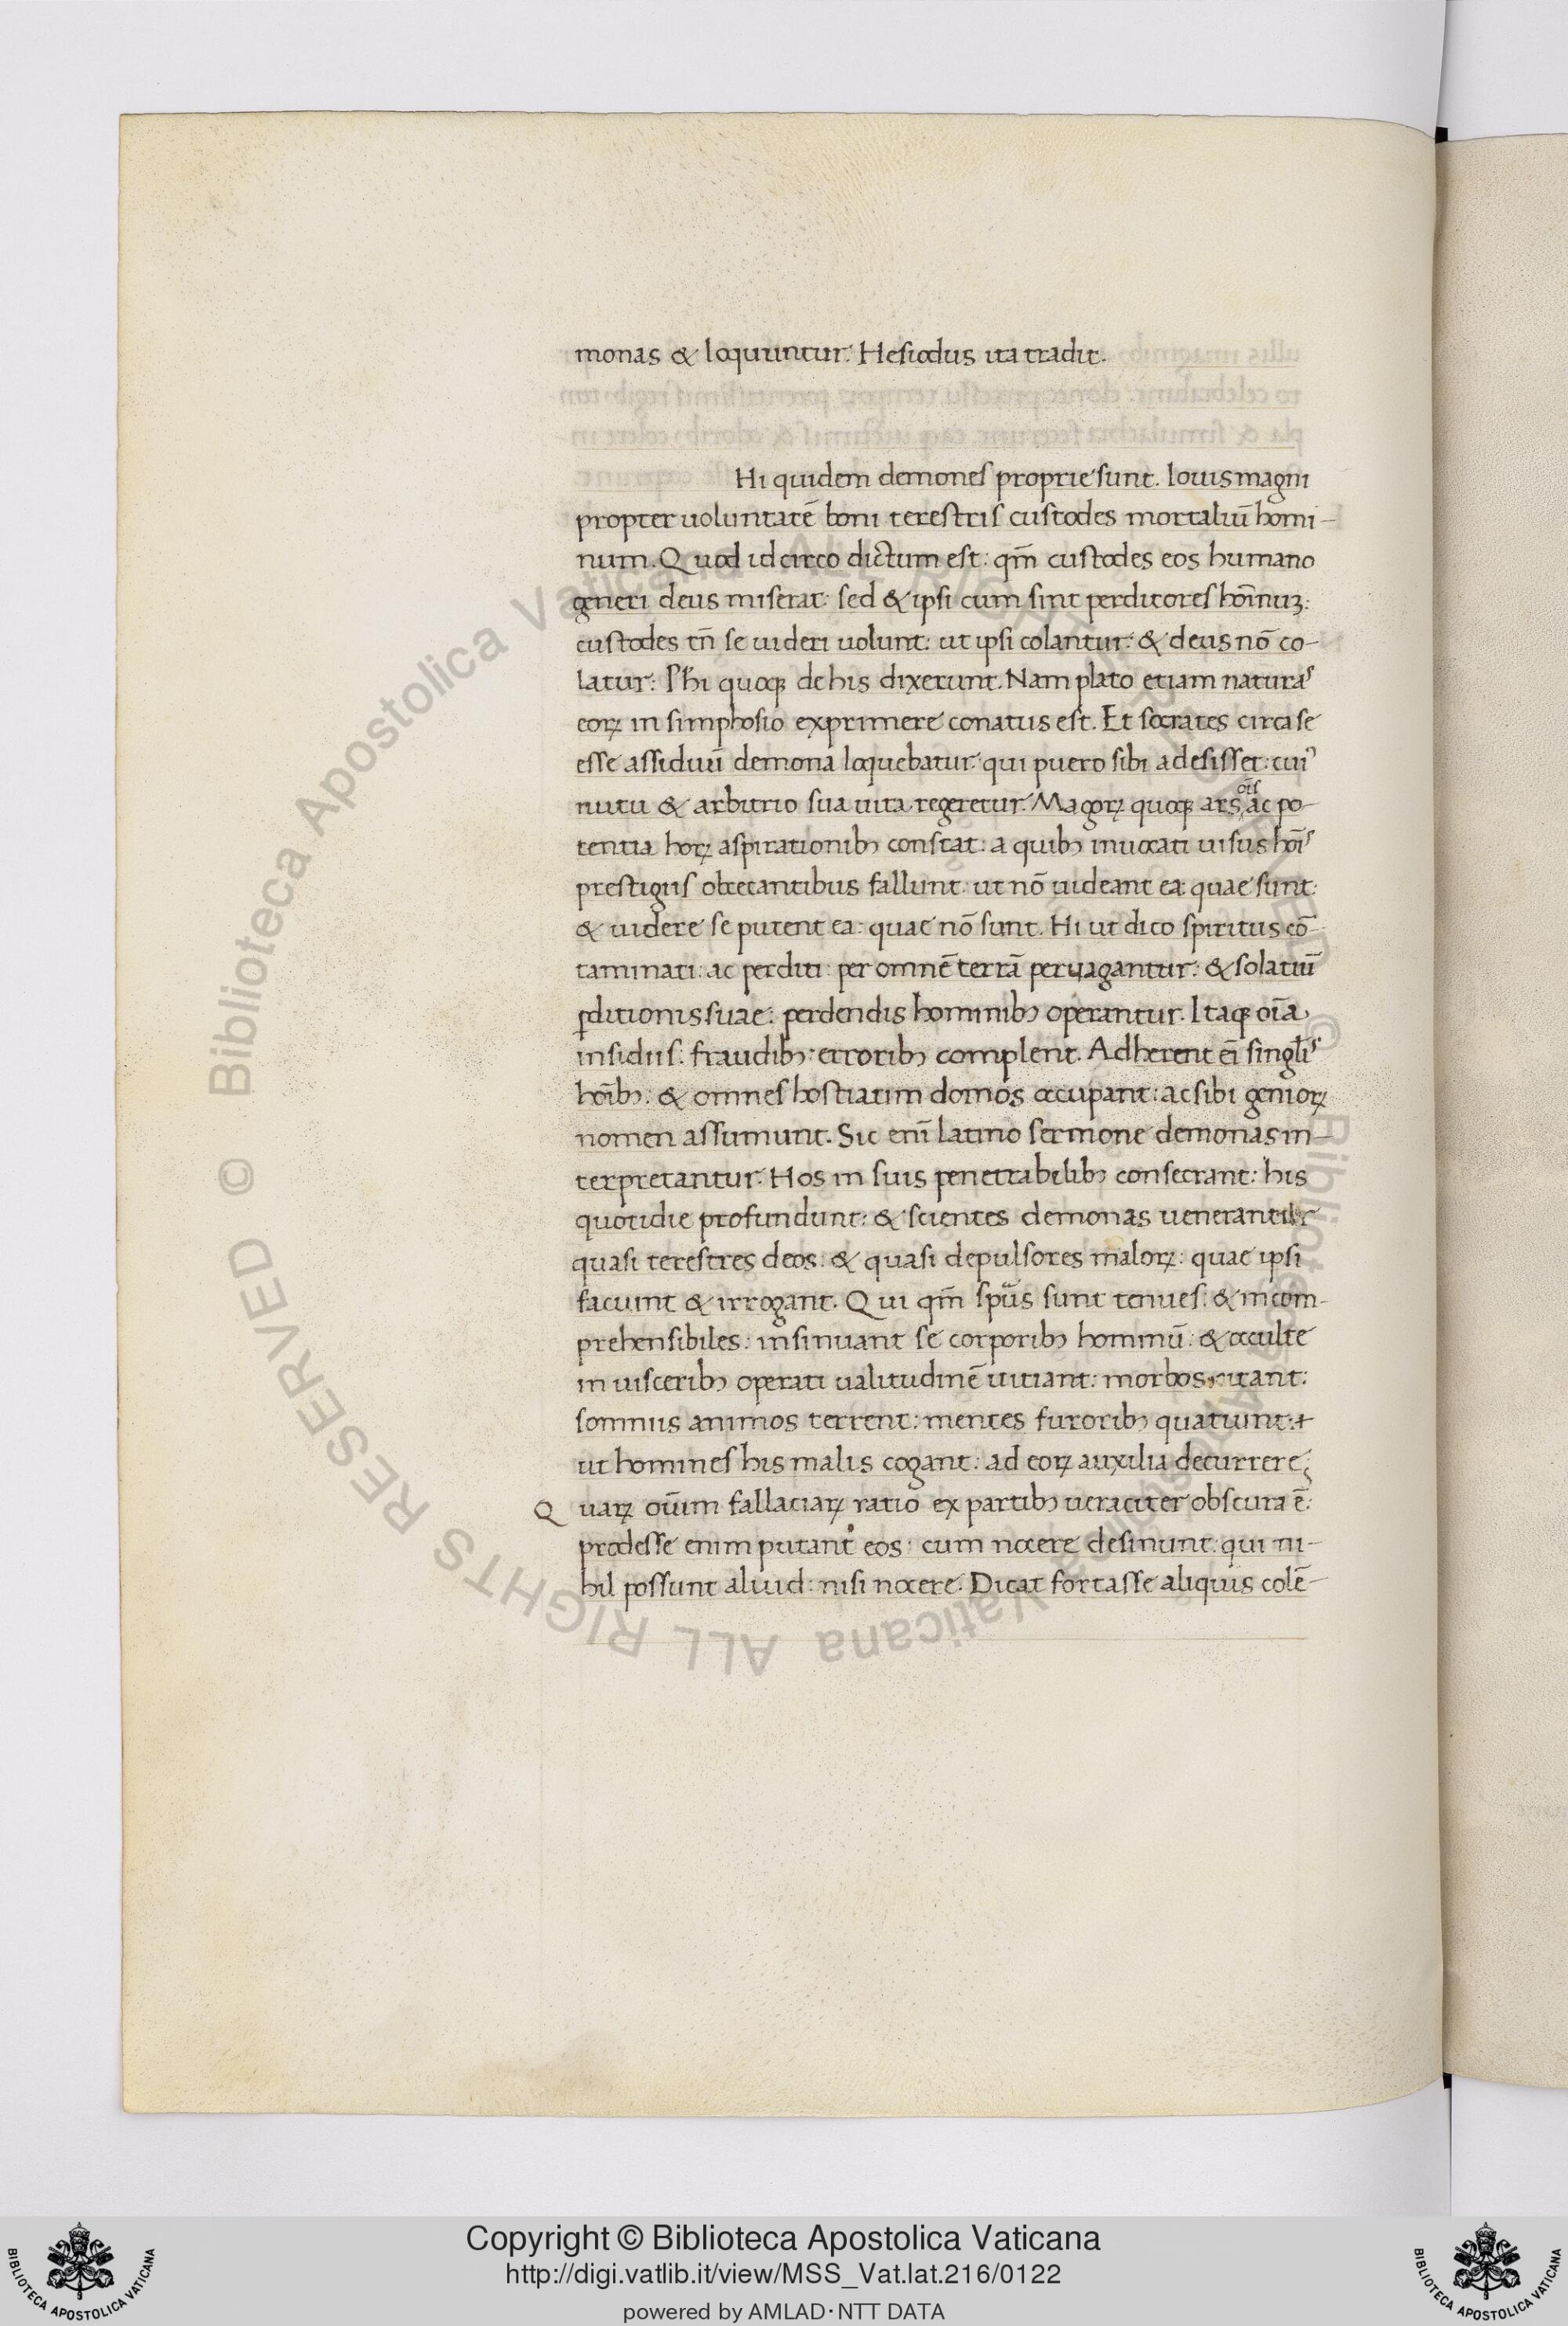 monas & loquuntur. Hesiodus ita tradit.
Hi quidem demones proprie sunt. Iouis magni
propter uoluntatē boni terestris custodes mortaliū homi-
num. Quod idcirco dictum est: qm̄ custodes eos humano
generi deus miserat: sed & ipsi cum sint perditores hoīnuꝫ:
custodes tn̄ se uideri uolunt: ut ipsi colantur: & deus nō co-
latur: Phi quoqꝫ de his dixerunt. Nam plato etiam naturas
eoꝝ in simphosio exprimere conatus est. Et socrates circa se
esse assiduū demona loquebatur: qui puero sibi adesisset: cuiꝰ
nutu & arbitrio sua uita regeretur. Magoꝝ quoqꝫ ars oīs ac po-
tentia hoꝝ aspirationibꝫ constat: a quibꝫ inuocati uisus hoīs
prestigiis obcecantibus fallunt: ut nō uideant ea: quae sunt:
& uidere se putent ea: quae nō sunt. Hi ut dico spiritus cō-
taminati: ac perditi: per omnē terrā peruagantur: & solatiū
ꝑditionis suae: perdendis hominibꝫ operantur. Itaqꝫ oīa
insidiis: fraudibꝫ: erroribꝫ complent. Adherent eī singlis
hoībꝫ: & omnes hostiatim domos occupant: ac sibi genioꝝ
nomen assumunt. Sic enī latino sermone demonas in-
terpretantur. Hos in suis penetrabilibꝫ consecrant: his
quotidie profundunt: & scientes demonas uenerantur
quasi terestres deos: & quasi depulsores maloꝝ: quae ipsi
faciunt & irrogant. Qui qm̄ spūs sunt tenues: & incom-
prehensibiles: insinuant se corporibꝫ hominū: & occulte
in uisceribꝫ operati ualitudinē uitiant: morbos citant:
somniis animos terrent: mentes furoribꝫ quatiunt: +
ut homines his malis cogant: ad eoꝝ auxilia decurrere;
Quaꝝ oīum fallaciaꝝ ratio expartibꝫ ueraciter obscura ē:
prodesse enim putant eos: cum nocere desinunt: qui ni-
hil possunt aliud: nisi nocere. Dicat fortasse aliquis colē-
© Biblioteca Apostolica Vaticana ALL RIGHTS RESERVED © Biblioteca Apostolica Vaticana ALL RIGHTS RESERVED
Copyright © Biblioteca Apostolica Vaticana
http://digi.vatlib.it/view/MSS_Vat.lat.216/0122
powered by AMLAD·NTT DATA
BIBLIOTECA APOSTOLICA VATICANA
BIBLIOTECA APOSTOLICA VATICANA